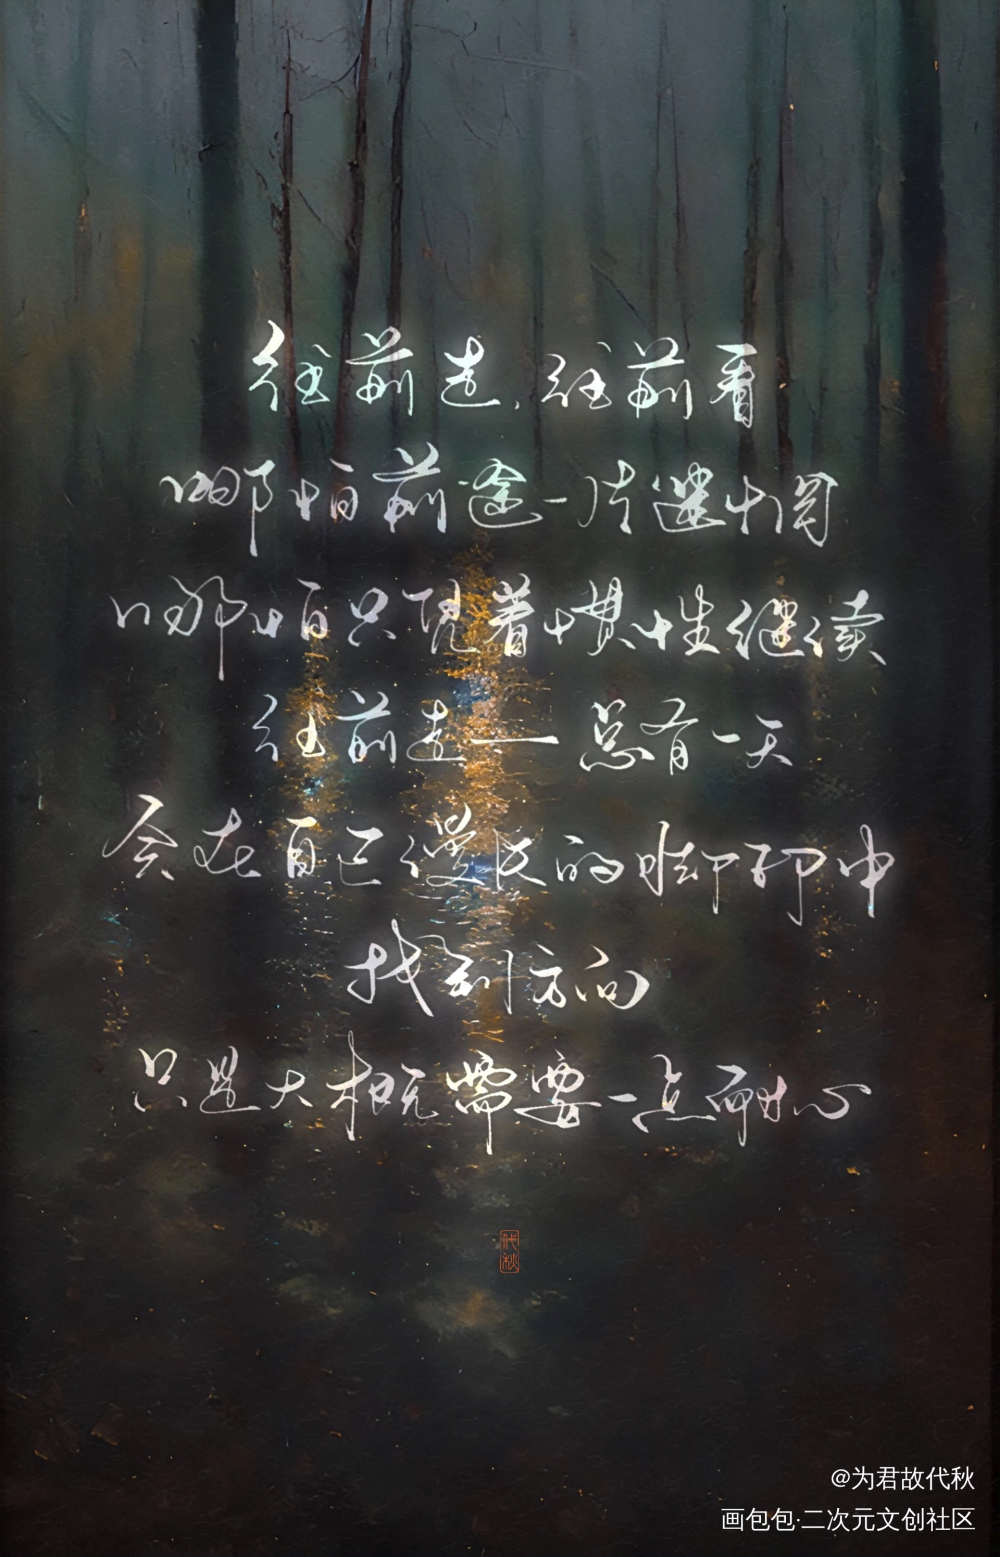 往前走,往前看
哪怕前途一片迷惘
哪怕只凭着惯性继续
往前走——总有一天
会在自己漫长的脚印中
找到方向
只是大概需要一点耐心
代秋
@为君故代秋
画包包·二次元文创社区